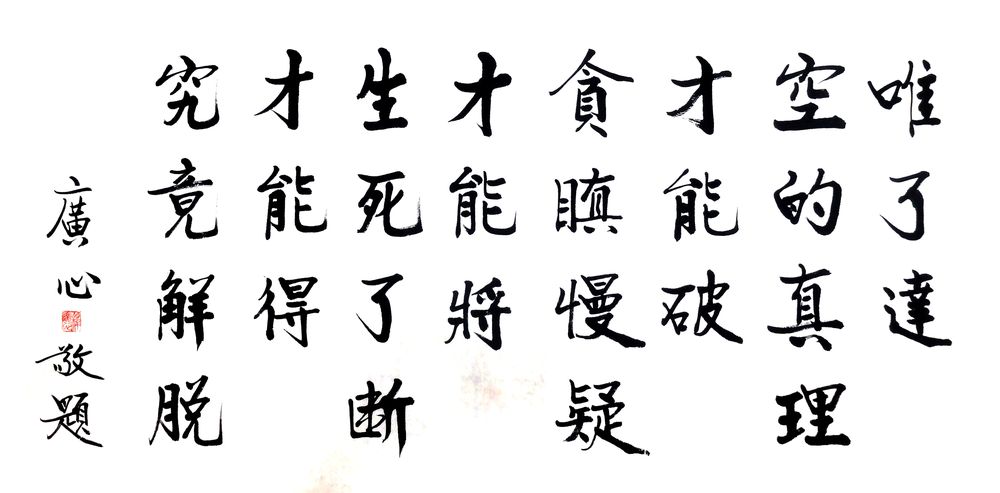 唯了達
空的真理
才能破
貪瞋慢疑
才能將
生死了断
才能得
究竟解脱
廣心敬題